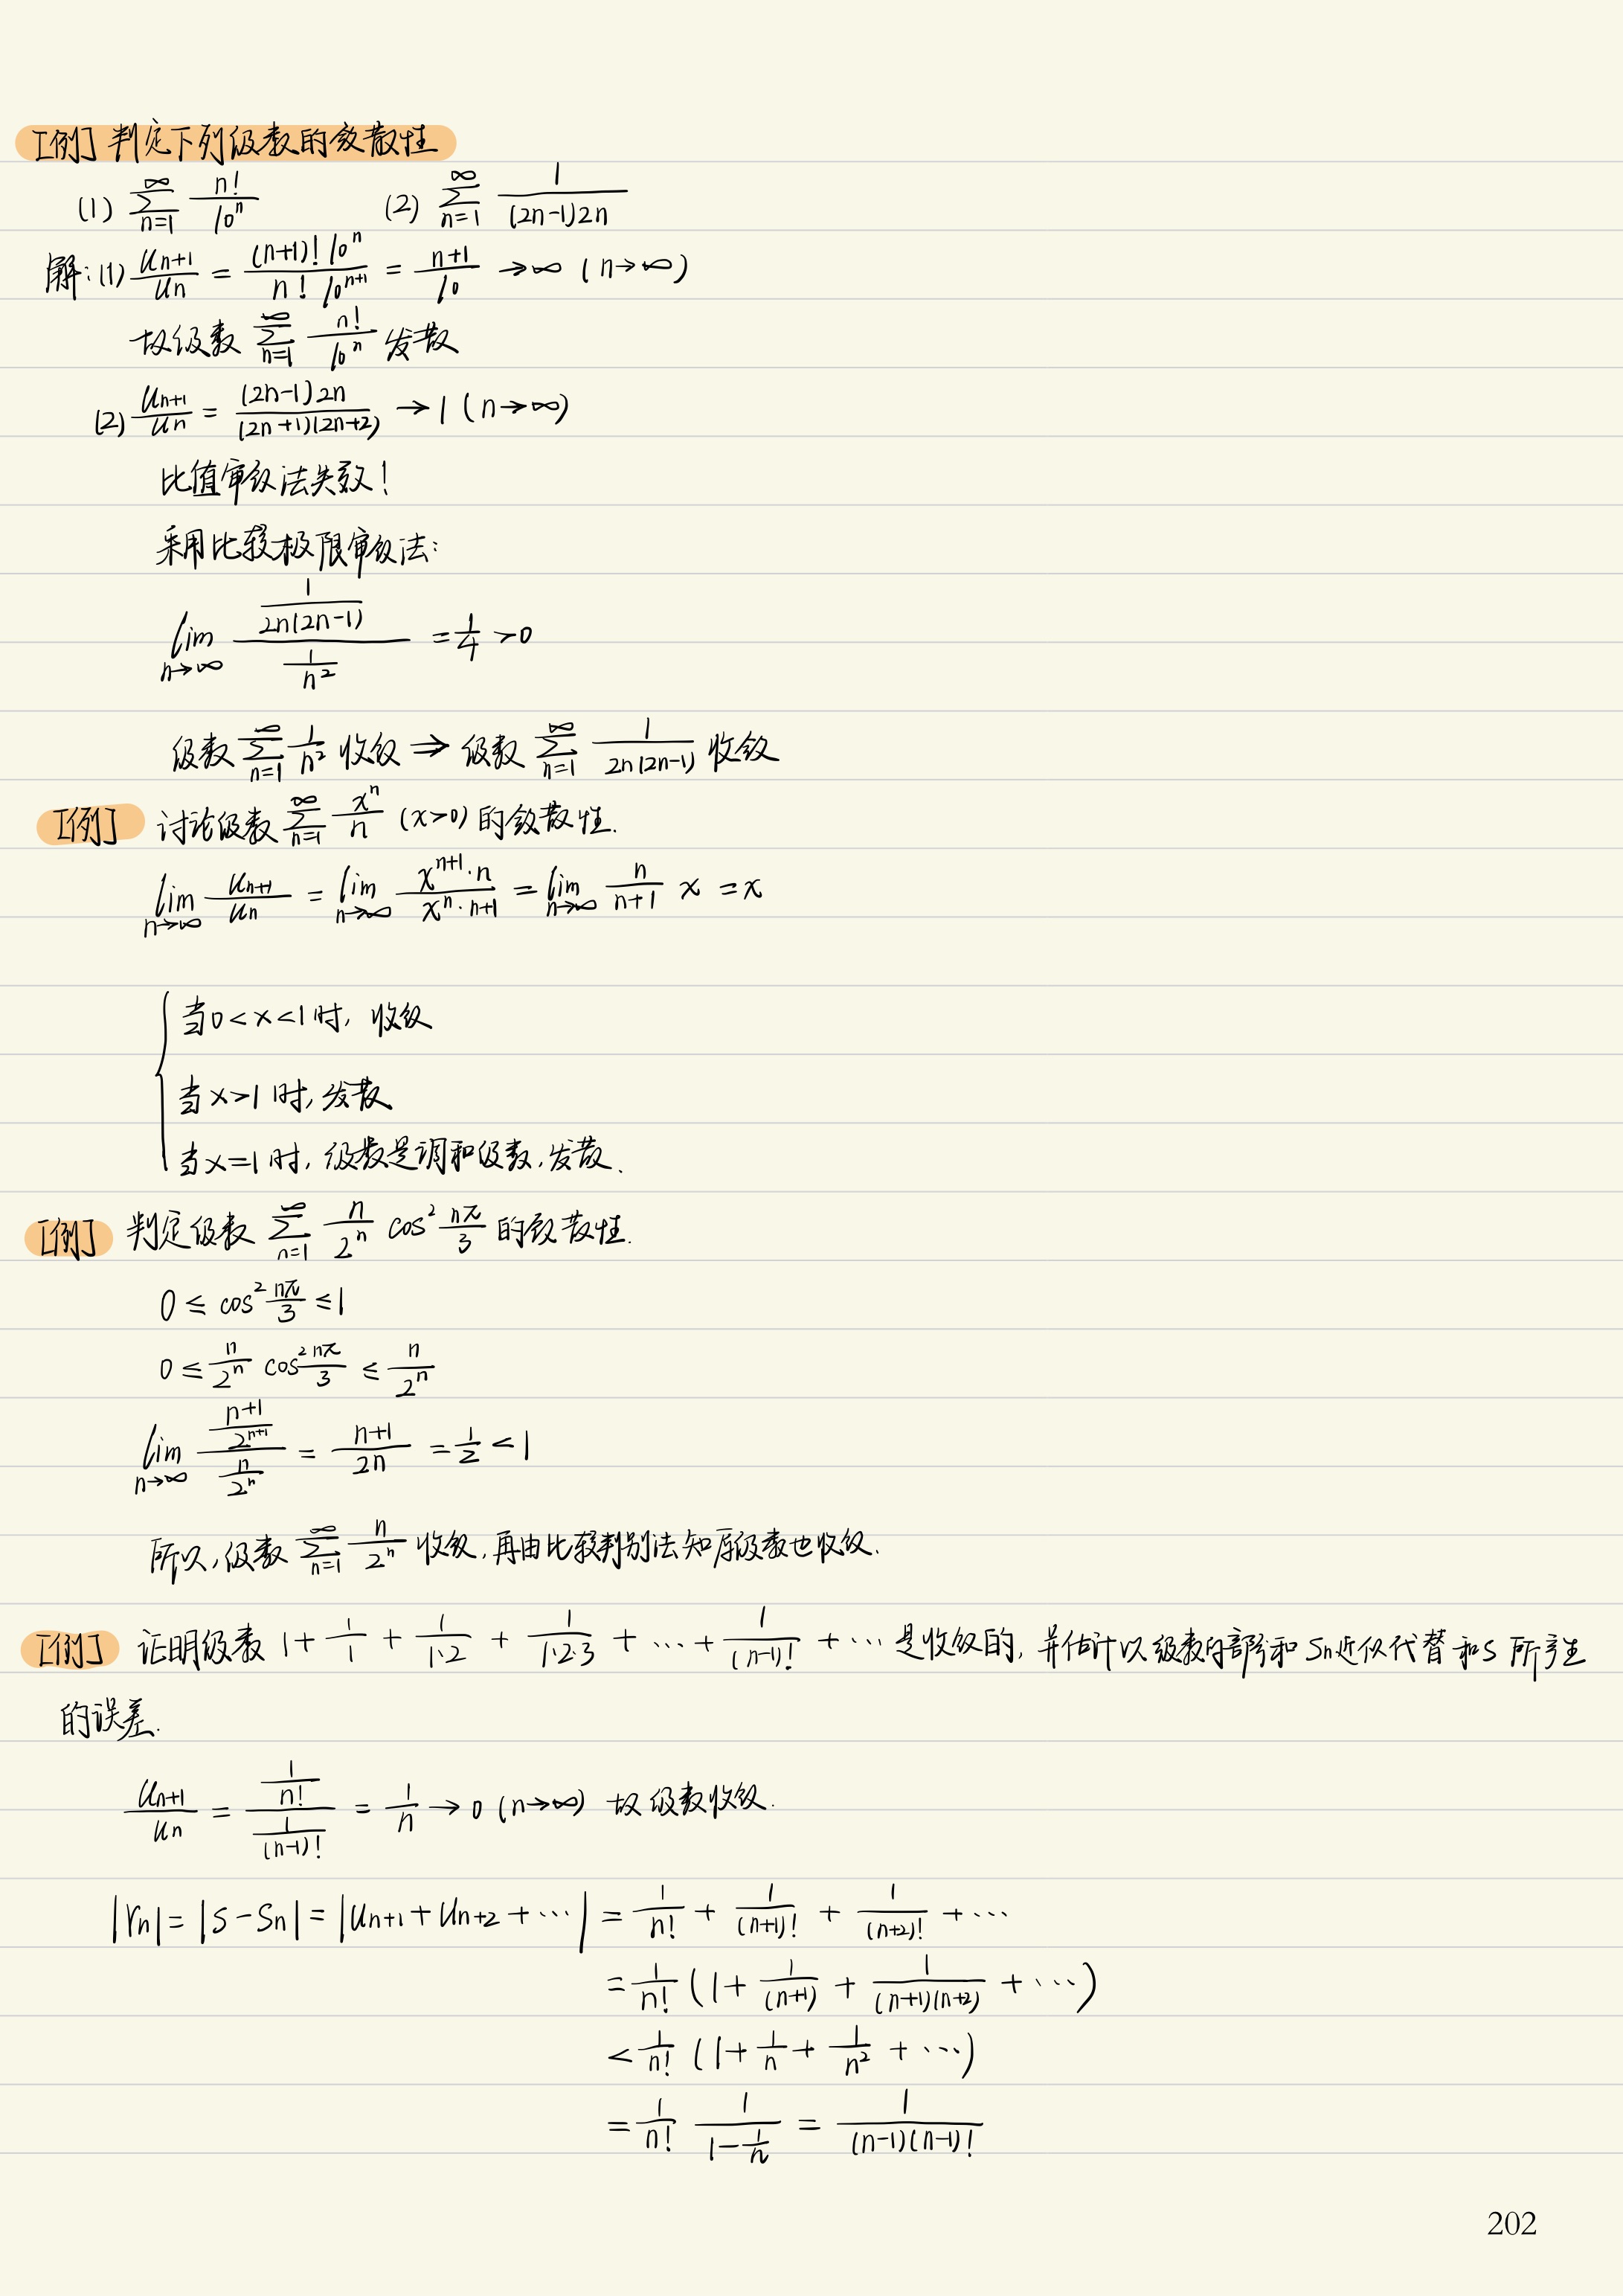 [例] 判定下列级数的敛散性
(1) $\sum_{n=1}^{\infty} \frac{n!}{10^n}$ (2) $\sum_{n=1}^{\infty} \frac{1}{(2n-1)2n}$
解: (1) $\frac{u_{n+1}}{u_n} = \frac{(n+1)! 10^n}{n! 10^{n+1}} = \frac{n+1}{10} \to \infty (n \to \infty)$
故级数 $\sum_{n=1}^{\infty} \frac{n!}{10^n}$ 发散
(2) $\frac{u_{n+1}}{u_n} = \frac{(2n-1)2n}{(2n+1)(2n+2)} \to 1 (n \to \infty)$
比值审敛法失效!
采用比较极限审敛法:
$\lim_{n \to \infty} \frac{\frac{1}{2n(2n-1)}}{\frac{1}{n^2}} = \frac{1}{4} > 0$
级数 $\sum_{n=1}^{\infty} \frac{1}{n^2}$ 收敛 ⇒ 级数 $\sum_{n=1}^{\infty} \frac{1}{2n(2n-1)}$ 收敛
[例] 讨论级数 $\sum_{n=1}^{\infty} \frac{x^n}{n}$ (x>0) 的敛散性.
$\lim_{n \to \infty} \frac{u_{n+1}}{u_n} = \lim_{n \to \infty} \frac{x^{n+1} \cdot n}{x^n \cdot n+1} = \lim_{n \to \infty} \frac{n}{n+1} x = x$
当 0<x<1 时, 收敛
当 x>1 时, 发散
当 x=1 时, 级数是调和级数, 发散.
[例] 判定级数 $\sum_{n=1}^{\infty} \frac{n}{2^n} \cos^2 \frac{n\pi}{3}$ 的敛散性.
$0 \le \cos^2 \frac{n\pi}{3} \le 1$
$0 \le \frac{n}{2^n} \cos^2 \frac{n\pi}{3} \le \frac{n}{2^n}$
$\lim_{n \to \infty} \frac{\frac{n+1}{2^{n+1}}}{\frac{n}{2^n}} = \frac{n+1}{2n} = \frac{1}{2} < 1$
所以, 级数 $\sum_{n=1}^{\infty} \frac{n}{2^n}$ 收敛, 再由比较判别法知原级数也收敛.
[例] 证明级数 $1 + \frac{1}{1} + \frac{1}{1 \cdot 2} + \frac{1}{1 \cdot 2 \cdot 3} + \cdots + \frac{1}{(n-1)!} + \cdots$ 是收敛的, 并估计以级数的部分和 Sn 近似代替和 S 所产生
的误差.
$\frac{u_{n+1}}{u_n} = \frac{\frac{1}{n!}}{\frac{1}{(n-1)!}} = \frac{1}{n} \to 0 (n \to \infty)$ 故级数收敛.
$|r_n| = |s - s_n| = |u_{n+1} + u_{n+2} + \cdots| = \frac{1}{n!} + \frac{1}{(n+1)!} + \frac{1}{(n+2)!} + \cdots$
$= \frac{1}{n!} (1 + \frac{1}{(n+1)} + \frac{1}{(n+1)(n+2)} + \cdots)$
$< \frac{1}{n!} (1 + \frac{1}{n} + \frac{1}{n^2} + \cdots)$
$= \frac{1}{n!} \frac{1}{1 - \frac{1}{n}} = \frac{1}{(n-1)(n-1)!}$
202